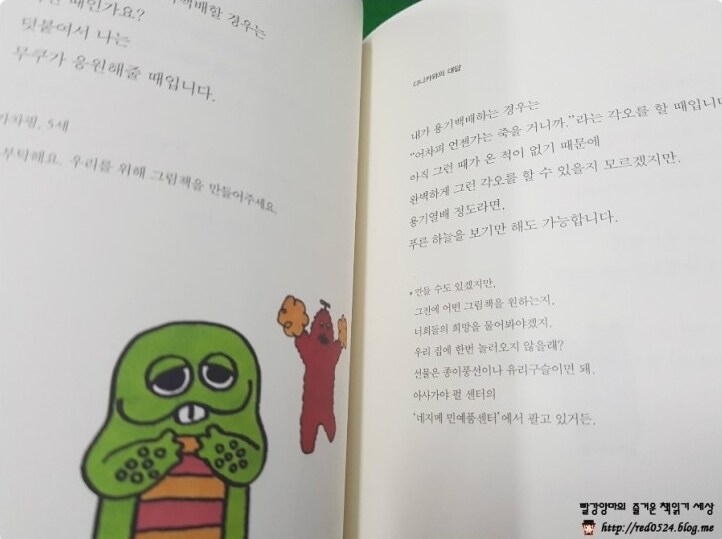 때인가요?
백배할 경우는
덧붙여서 나는
무쿠가 응원해줄 때입니다.
5세
부탁해요. 우리를 위해 그림책을 만들어주세요.
다니카와의 대답
내가 용기백배하는 경우는
“어차피 언젠가는 죽을 거니까.”라는 각오를 할 때입니다
아직 그런 때가 온 적이 없기 때문에
완벽하게 그런 각오를 할 수 있을지 모르겠지만,
용기열배 정도라면,
푸른 하늘을 보기만 해도 가능합니다.
*만들 수도 있겠지만,
그전에 어떤 그림책을 원하는지,
너희들의 희망을 물어봐야겠지.
우리 집에 한번 놀러오지 않을래?
선물은 종이풍선이나 유리구슬이면 돼.
아사가야 펄 센터의
‘네지메 민예품센터’에서 팔고 있거든.
빨강앙마의 즐거운 책읽기 세상
http://red0524.blog.me